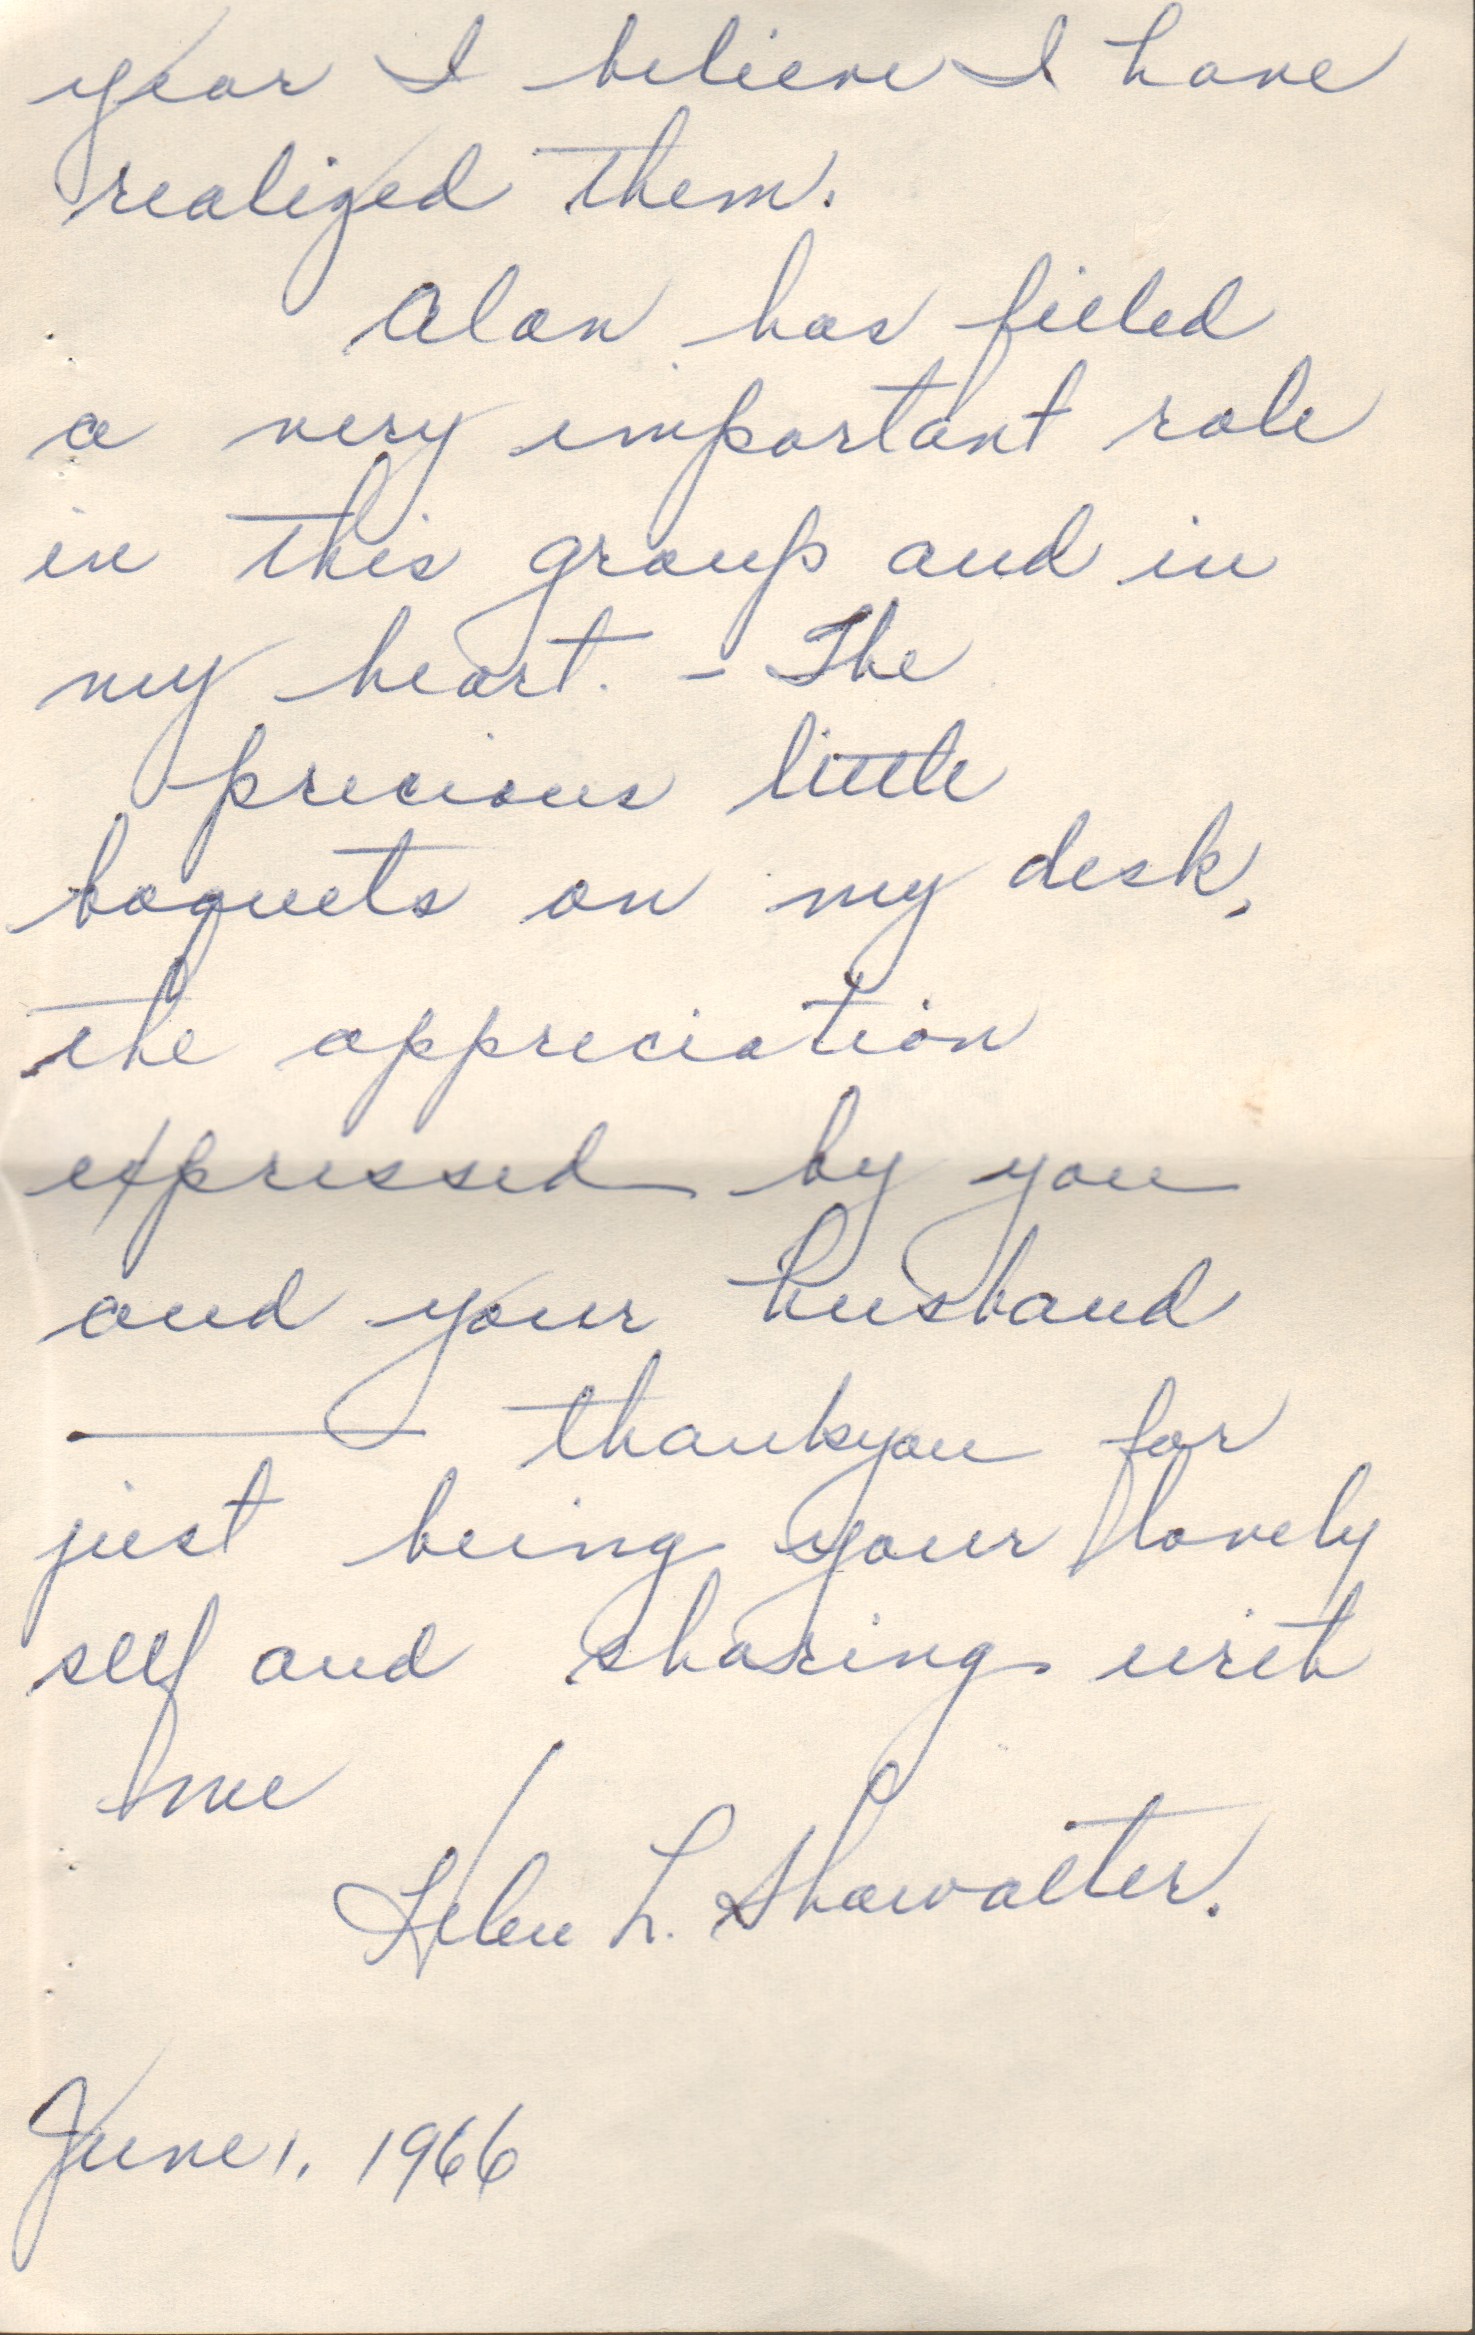 year I believe I have
realized them.
Alan has filled
a very important role
in this group and in
my heart. - The
precious little
boquets on my desk,
the appreciation
expressed by you
and your husband
— thankyou for
just being your lovely
self and sharing with
me
Helen L. Showalter.
June 1, 1966